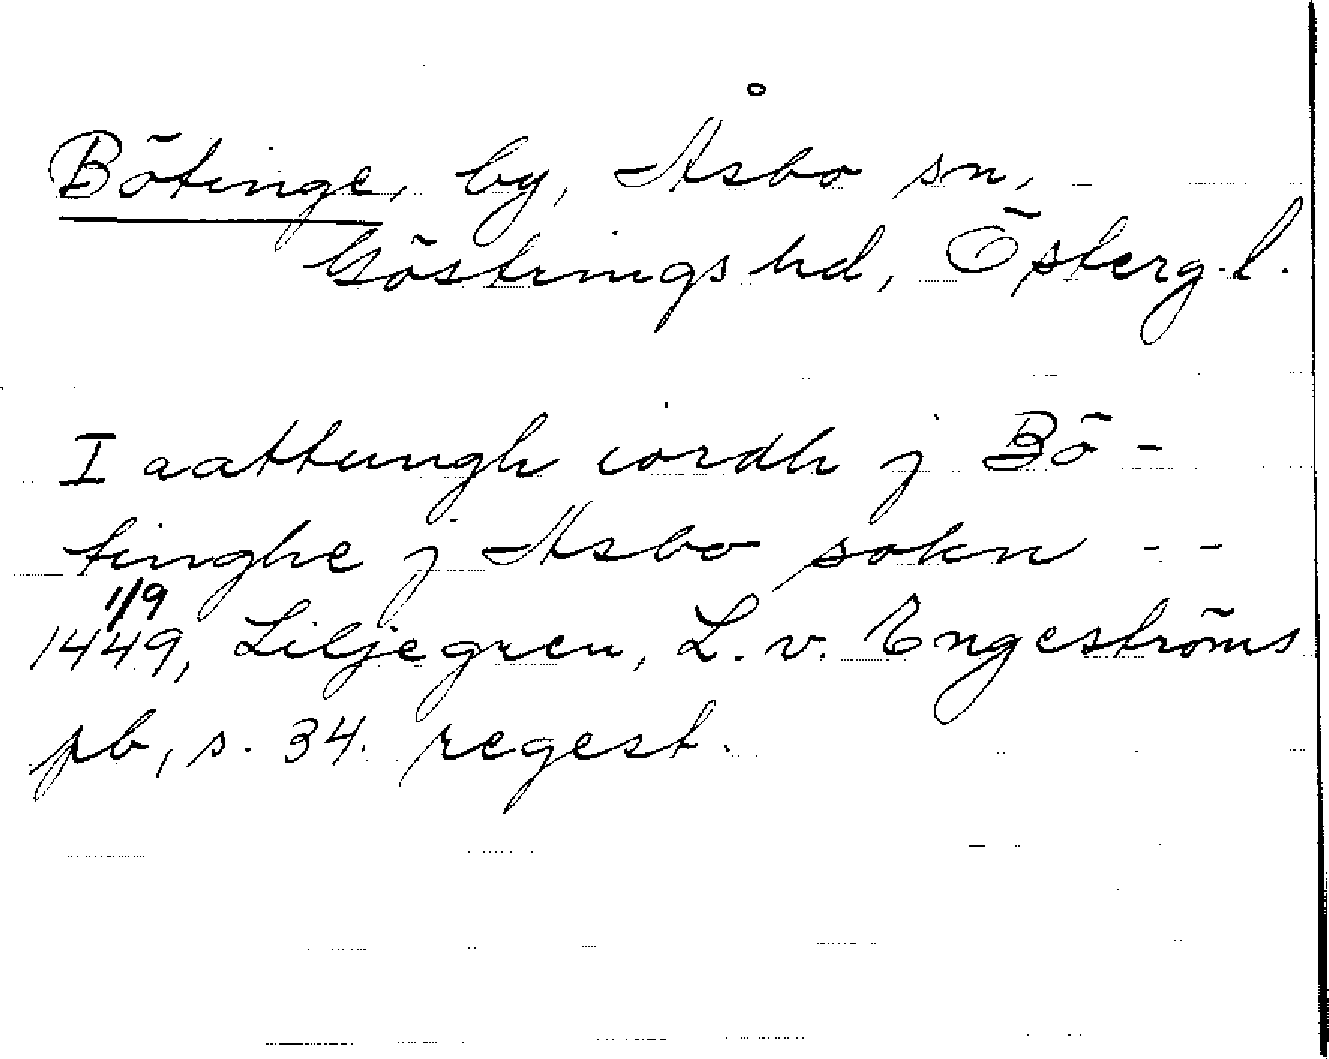 Bötinge, by, Åsbo sn,
Göstrings hd, Österg.l.
I aattungh iordh j Bö-
tinghe j Asbo sokn - -
1/9
1449, Liljegren, L. v. Engeströms
pb, s. 34. regest.